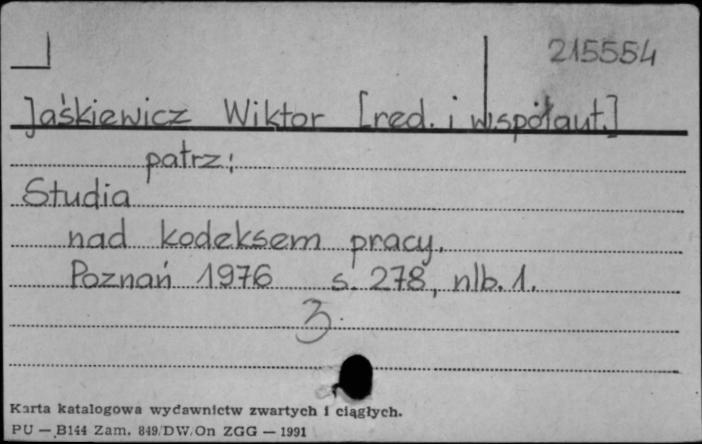 215554
Jaśkiewicz Wiktor [red. i współaut.]
patrz:
Studia
nad kodeksem pracy.
Poznań 1976 s. 278, nlb. 1.
3
Karta katalogowa wydawnictw zwartych i ciągłych.
PU — B144 Zam. 849/DW/On ZGG — 1991